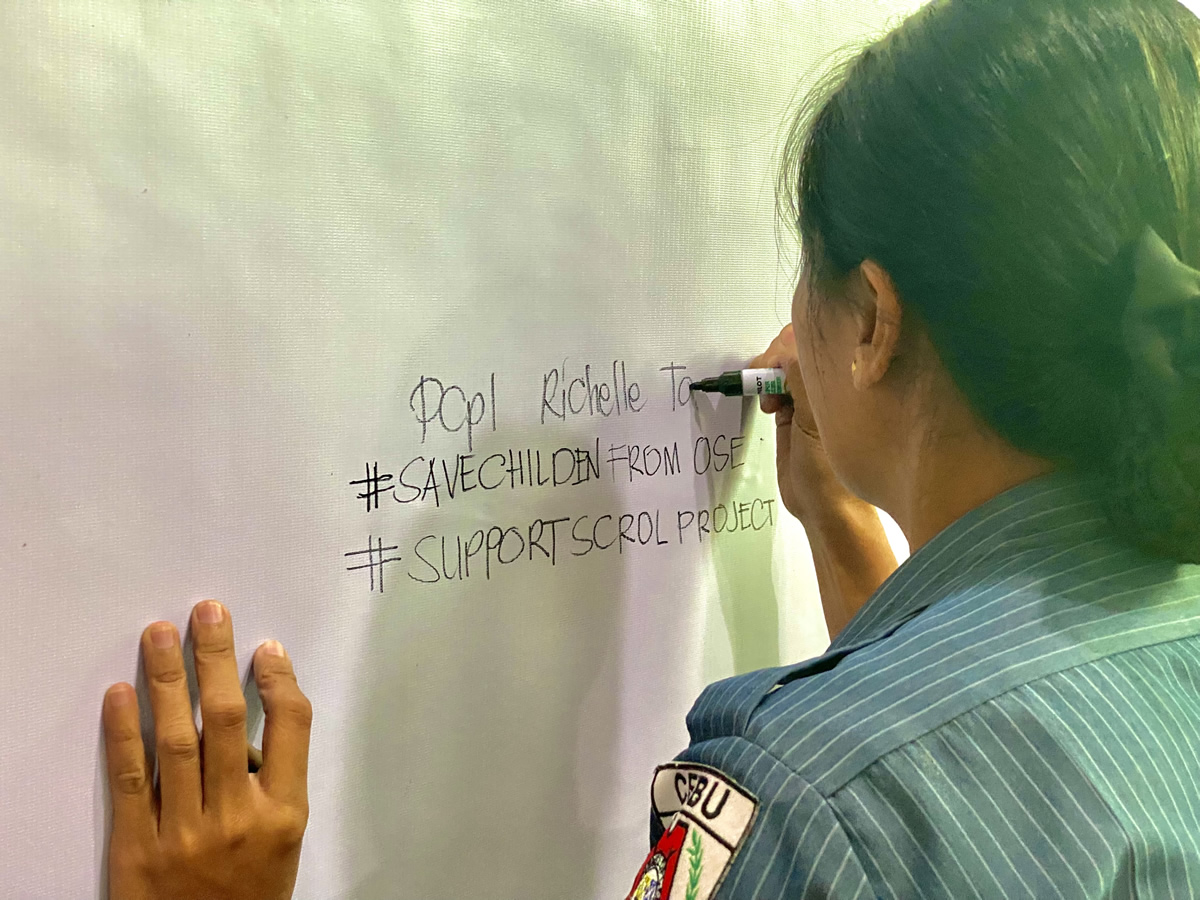 PCpl Richelle Ta
#SAVECHILDEN FROM OSE
# SUPPORT SCROL PROJECT
PILOT
CEBU